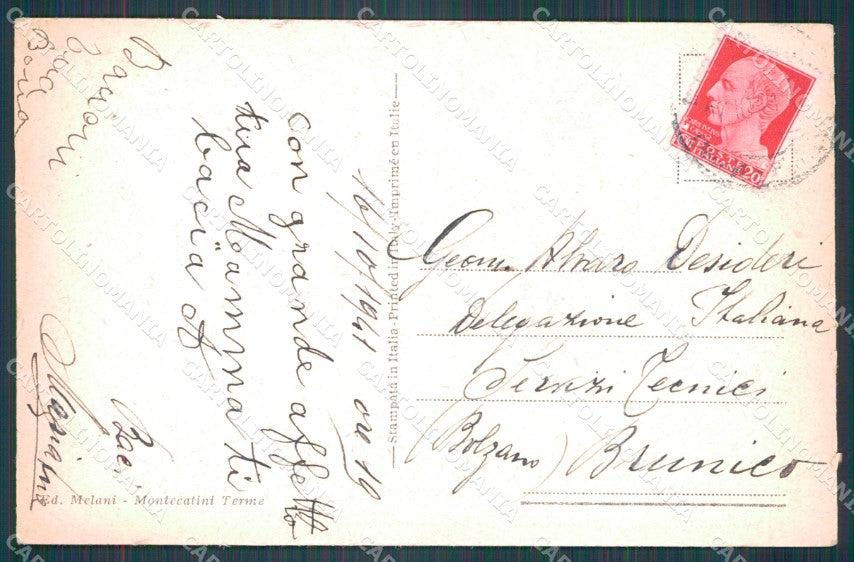 16/10/1941 ore 19
con grande affetto
tua Mamma ti
bacia A
Bacioni
Baci
Geom. Alvaro Desideri
Delegazione Italiana
Servizi Tecnici
(Bolzano) Brunico
Stampata in Italia - Printed in Italy - Imprimé en Italie
Ed. Melani - Montecatini Terme
POSTE ITALIANE
20
CARTOLINOMANIA